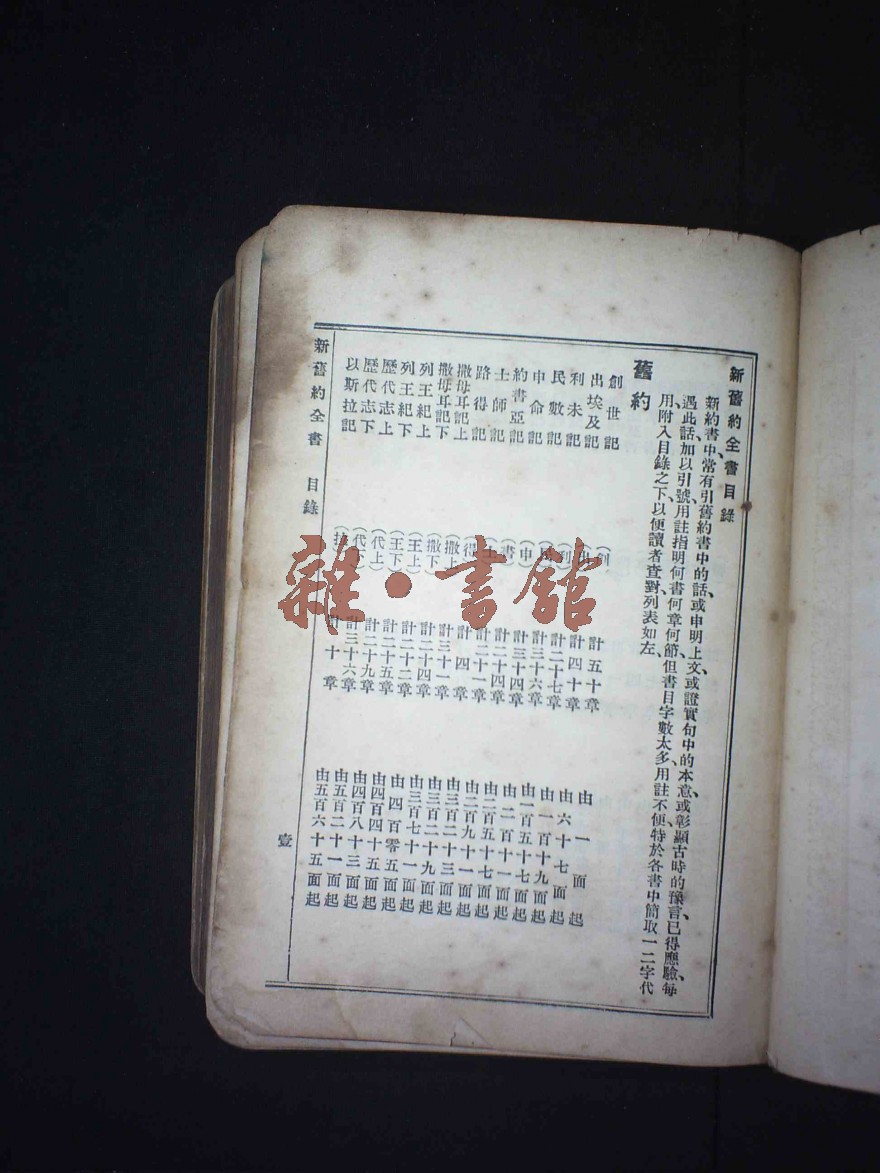 新舊約全書目錄
新約書中、常有引舊約書中的話、或申明上文、或證實句中的本意、或彰顯古時的豫言、已得應驗、每
遇此話、加以引號、用註指明何書何章何節、但書目字數太多、用註不便、特於各書中簡取一二字代
用、附入目錄之下、以便讀者查對、列表如左、
舊約
創世記 (創) 計五十章 由一面起
出埃及記 (出) 計四十章 由六十七面起
利未記 (利) 計二十七章 由一百十九面起
民數記 (民) 計三十六章 由一百五十七面起
申命記 (申) 計三十四章 由二百十一面起
約書亞記 (書) 計二十四章 由二百五十七面起
士師記 (士) 計二十一章 由二百九十一面起
路得記 (得) 計四章 由三百二十三面起
撒母耳記上 (撒上) 計三十一章 由三百二十九面起
撒母耳記下 (撒下) 計二十四章 由三百七十一面起
列王紀上 (王上) 計二十二章 由四百零五面起
列王紀下 (王下) 計二十五章 由四百四十五面起
歷代志上 (代上) 計二十九章 由四百八十三面起
歷代志下 (代下) 計三十六章 由五百二十一面起
以斯拉記 (拉) 計十章 由五百六十五面起
新舊約全書 目錄
壹
雜·書館